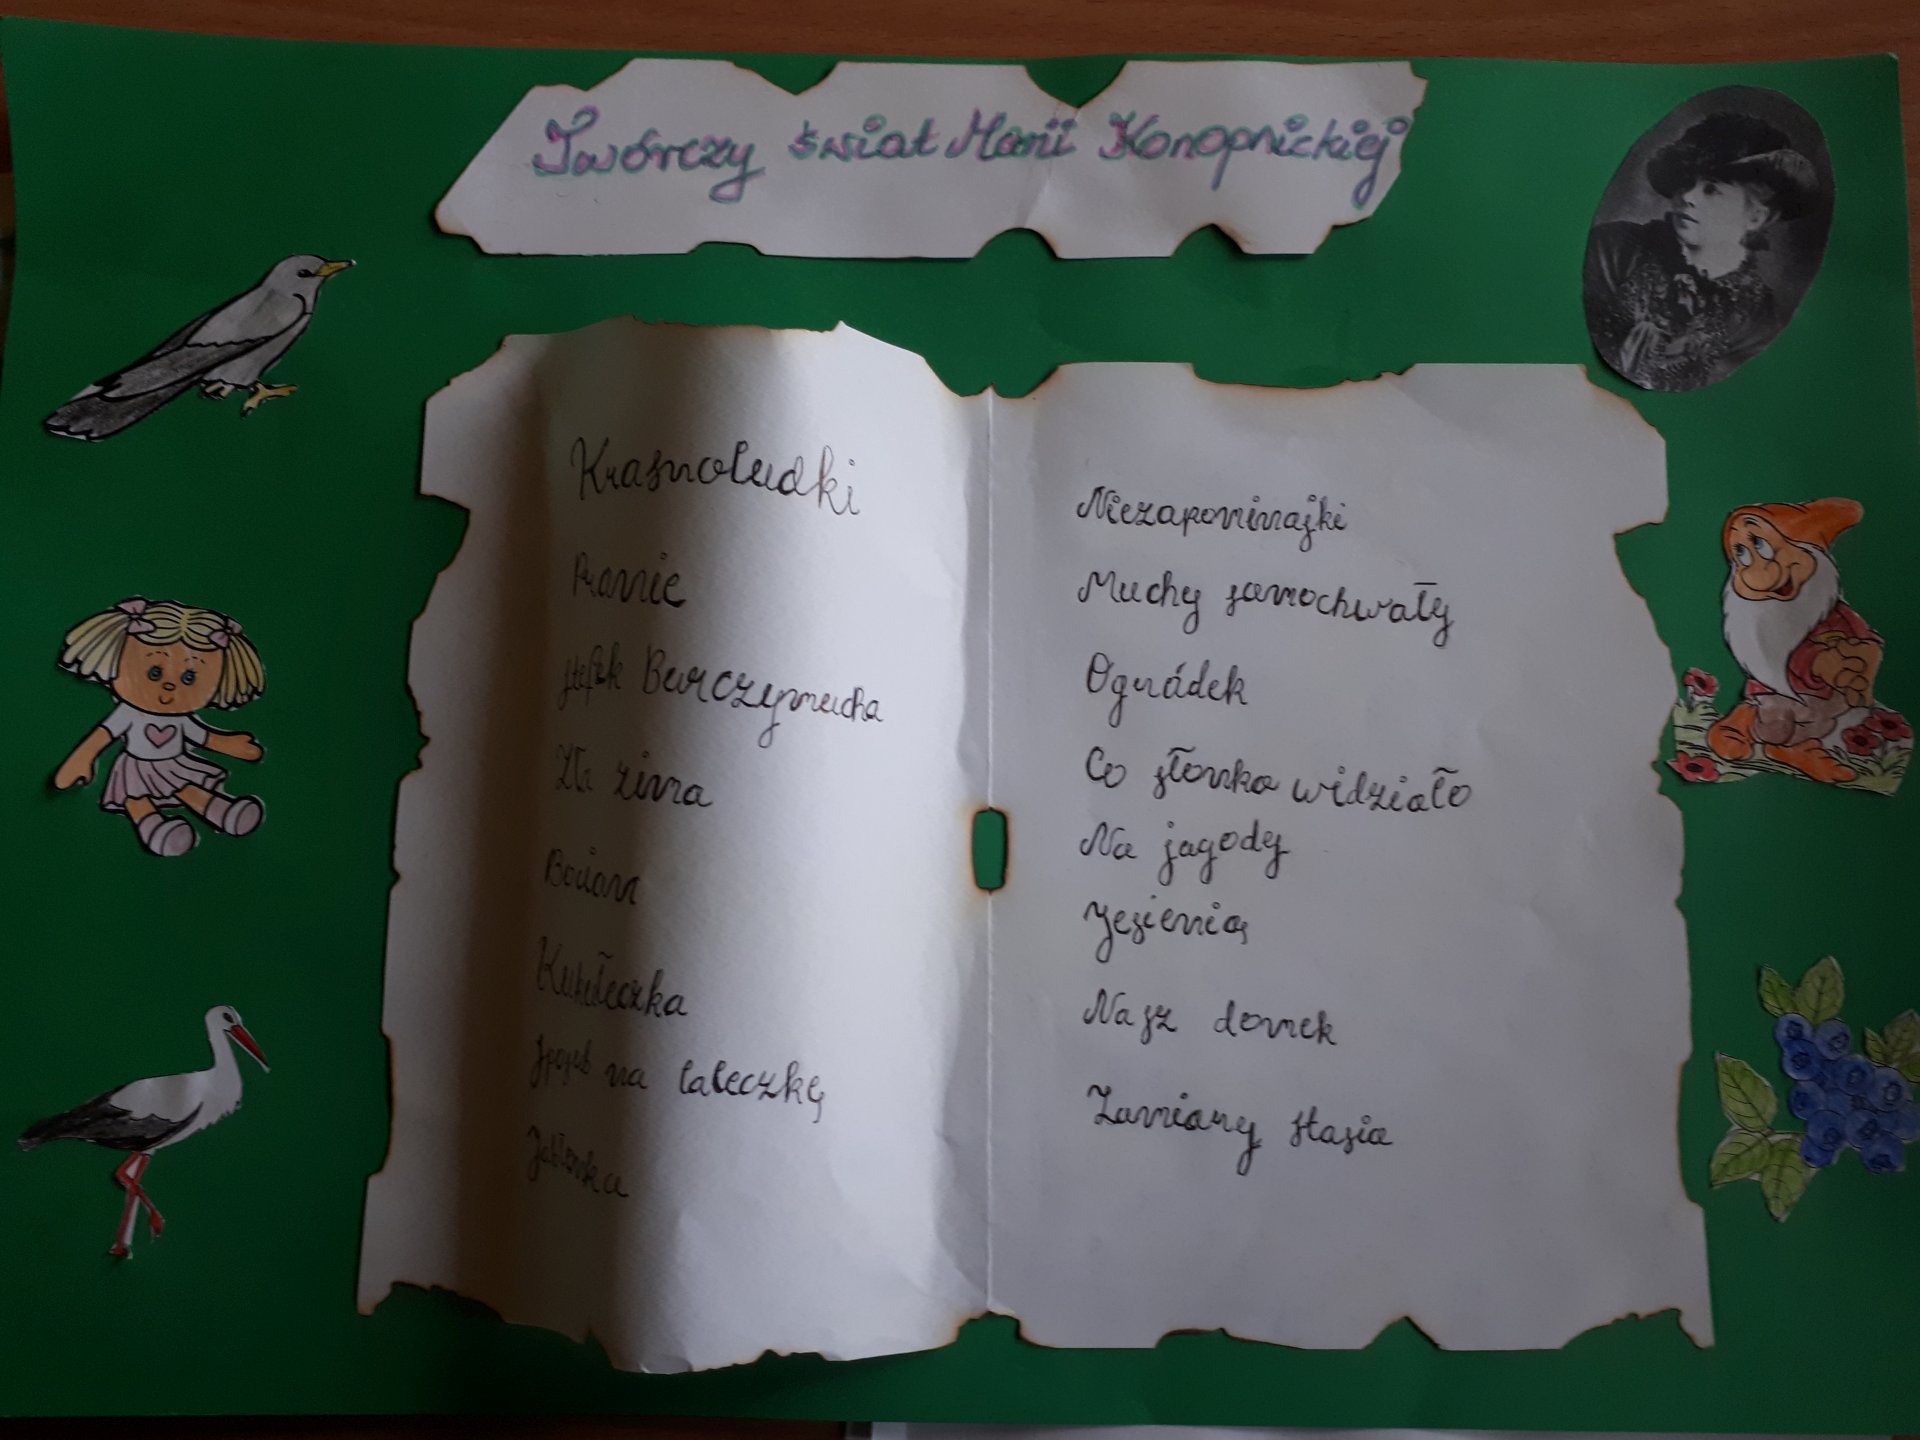 Twórczy świat Marii Konopnickiej
Krasnoludki
Pranie
Stefek Burczymucha
Zła zima
Bocian
Kukułeczka
Sposób na laleczkę
Jabłonka
Niezapominajki
Muchy samochwały
Ogródek
Co słonko widziało
Na jagody
Jesienią
Nasz domek
Zamiary Stasia